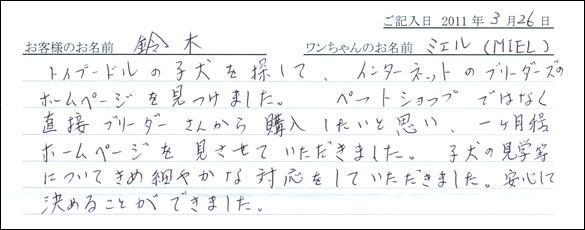 ご記入日 2011年3月26日
お客様のお名前 鈴木 ワンちゃんのお名前 ミエル(MIEL)
トイプードルの子犬を探して、インターネットのブリーダーズの
ホームページを見つけました。 ペットショップではなく
直接ブリーダーさんから購入したいと思い、一ヶ月程
ホームページを見させていただきました。子犬の見学等
についてきめ細やかな対応をしていただきました。安心して
決めることができました。